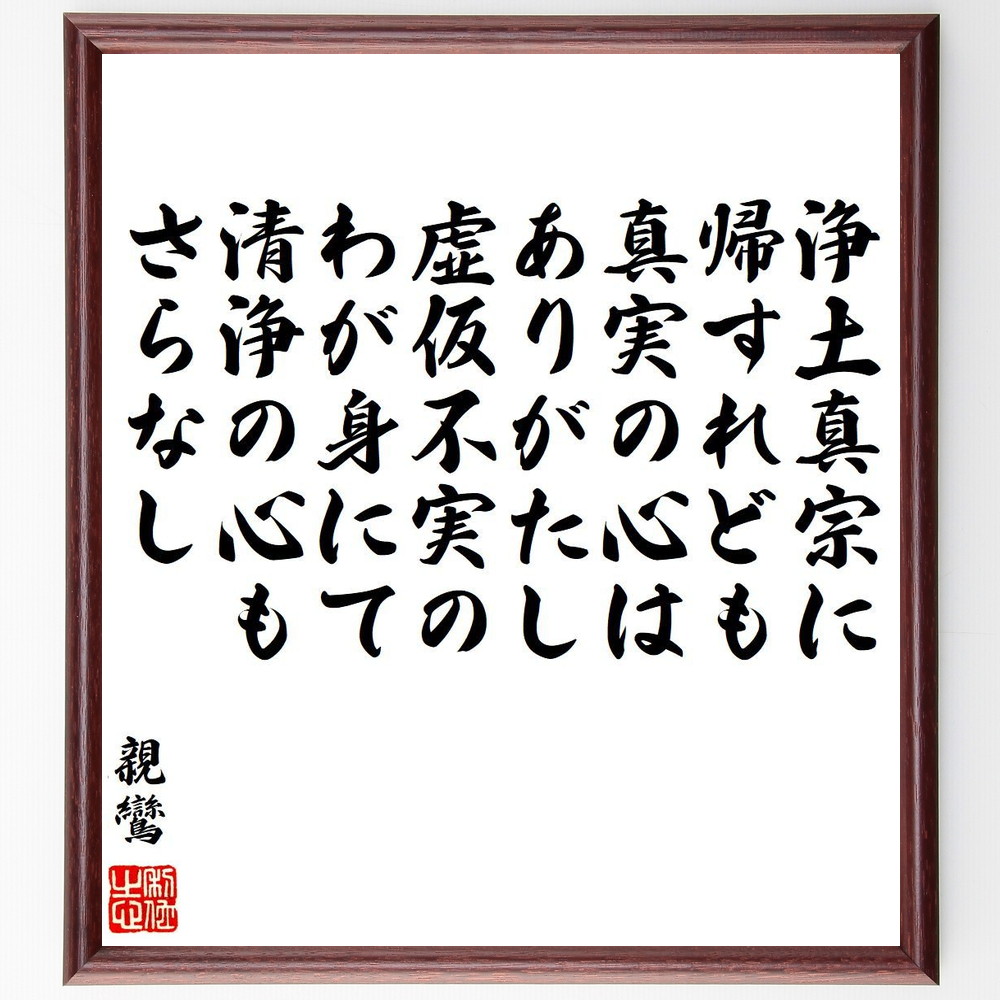 浄土真宗に
帰すれども
真実の心は
ありがたし
虚仮不実の
わが身にて
清浄の心も
さらなし
親鸞